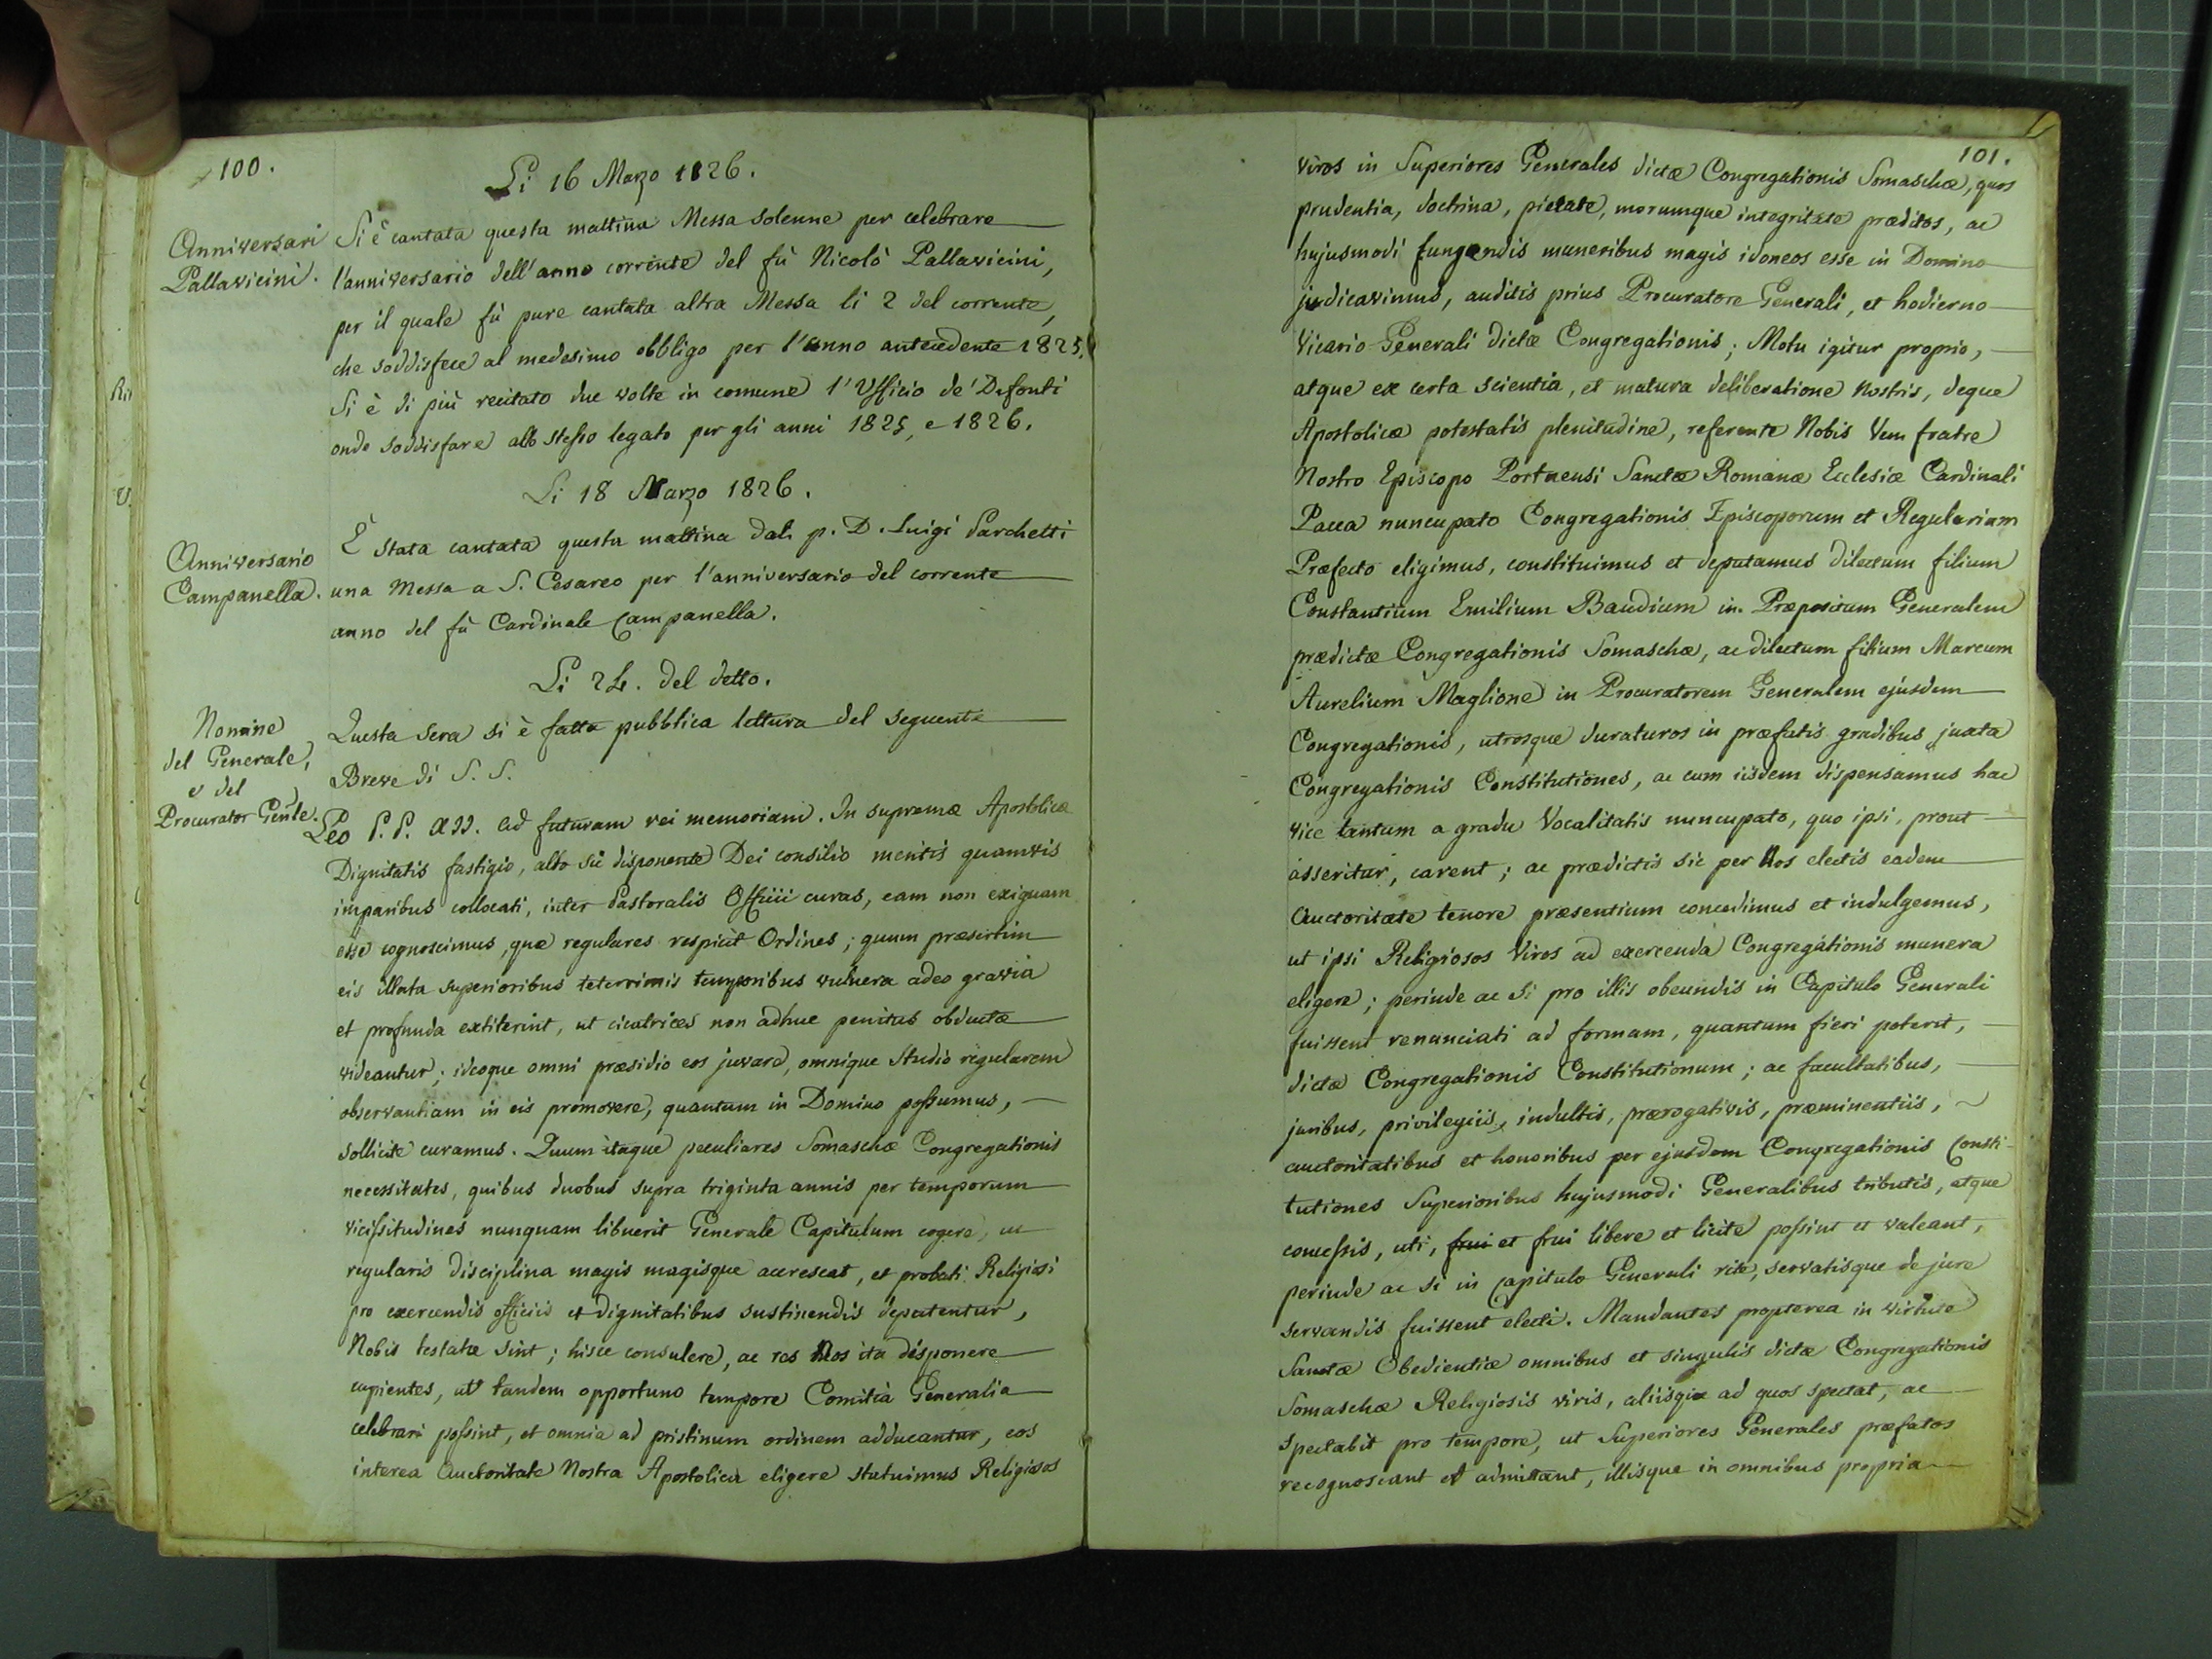 100.
Li 16 Marzo 1826.
Anniversari
Pallavicini.
Si è cantata questa mattina Messa solenne per celebrare
l'anniversario dell'anno corrente del fù Nicolò Pallavicini,
per il quale fù pure cantata altra Messa li 2 del corrente,
che soddisfece al medesimo obbligo per l'anno antecedente 1825.
Si è di più recitato due volte in comune l'Ufficio de' Defonti
onde soddisfare allo stesso legato per gli anni 1825, e 1826.
Li 18 Marzo 1826.
Anniversario
Campanella.
È stata cantata questa mattina dal p. D. Luigi Parchetti
una Messa a S. Cesareo per l'anniversario del corrente
anno del fù Cardinale Campanella.
Li 24. del detto.
Nomine
del Generale,
e del
Procurator Gen̄le.
Questa sera si è fatta pubblica lettura del seguente
Breve di S. S.
Leo P. P. XII. Ad futuram rei memoriam. In supremæ Apostolicæ
Dignitatis fastigio, alto sic disponente Dei consilio meritis quamvis
imparibus collocati, inter Pastoralis Officii curas, eam non exiguam
esse cognoscimus, quæ regulares respicit Ordines; quum præsertim
eis illata superioribus teterrimis temporibus vulnera adeo gravia
et profunda extiterint, ut cicatrices non adhuc penitus obductæ
videantur; ideoque omni præsidio eos juvare, omnique studio regularem
observantiam in eis promovere, quantum in Domino possumus,
sollicite curamus. Quum itaque peculiares Somaschæ Congregationis
necessitates, quibus duobus supra triginta annis per temporum
vicissitudines nunquam libuerit Generale Capitulum cogere, ut
regularis disciplina magis magisque accrescat, et probati Religiosi
pro exercendis officiis et dignitatibus sustinendis deputentur,
Nobis testatæ sint; hisce consulere, ac res Nos ita disponere
cupientes, ut tandem opportuno tempore Comitia Generalia
celebrari possint, et omnia ad pristinum ordinem adducantur, eos
interea Auctoritate Nostra Apostolica eligere statuimus Religiosos
101.
viros in Superiores Generales dictæ Congregationis Somaschæ, quos
prudentia, doctrina, pietate, morumque integritate præditos, ac
hujusmodi fungendis muneribus magis idoneos esse in Domino
judicavimus, auditis prius Procuratore Generali, et hodierno
Vicario Generali dictæ Congregationis; Motu igitur proprio,
atque ex certa scientia, et matura deliberatione Nostris, deque
Apostolicæ potestatis plenitudine, referente Nobis Ven fratre
Nostro Episcopo Portuensi Sanctæ Romanæ Ecclesiæ Cardinali
Pacca nuncupato Congregationis Episcoporum et Regularium
Præfecto eligimus, constituimus et deputamus dilectum filium
Constantium Emilium Baudium in Præpositum Generalem
prædictæ Congregationis Somaschæ, ac dilectum filium Marcum
Aurelium Maglione in Procuratorem Generalem ejusdem
Congregationis, utrosque duraturos in præfatis gradibus juxta
Congregationis Constitutiones, ac cum iisdem dispensamus hac
vice tantum a gradu Vocalitatis nuncupato, quo ipsi, prout
asseritur, carent; ac prædictis sic per Nos electis eadem
Auctoritate tenore præsentium concedimus et indulgemus,
ut ipsi Religiosos Viros ad exercenda Congregationis munera
eligere; perinde ac si pro illis obeundis in Capitulo Generali
fuissent renunciati ad formam, quantum fieri poterit,
dictæ Congregationis Constitutionum; ac facultatibus,
juribus, privilegiis, indultis, prærogativis, præminentiis,
auctoritatibus et honoribus per ejusdem Congregationis Consti-
tutiones Superioribus hujusmodi Generalibus tributis, atque
concessis, uti, frui et frui libere et licite possint et valeant,
perinde ac si in Capitulo Generali rite, servatisque de jure
servandis fuissent electi. Mandantes propterea in virtute
Sanctæ Obedientiæ omnibus et singulis dictæ Congregationis
Somaschæ Religiosis viris, aliisque ad quos spectat, ac
spectabit pro tempore, ut Superiores Generales præfatos
recognoscant et admittant, illisque in omnibus propria